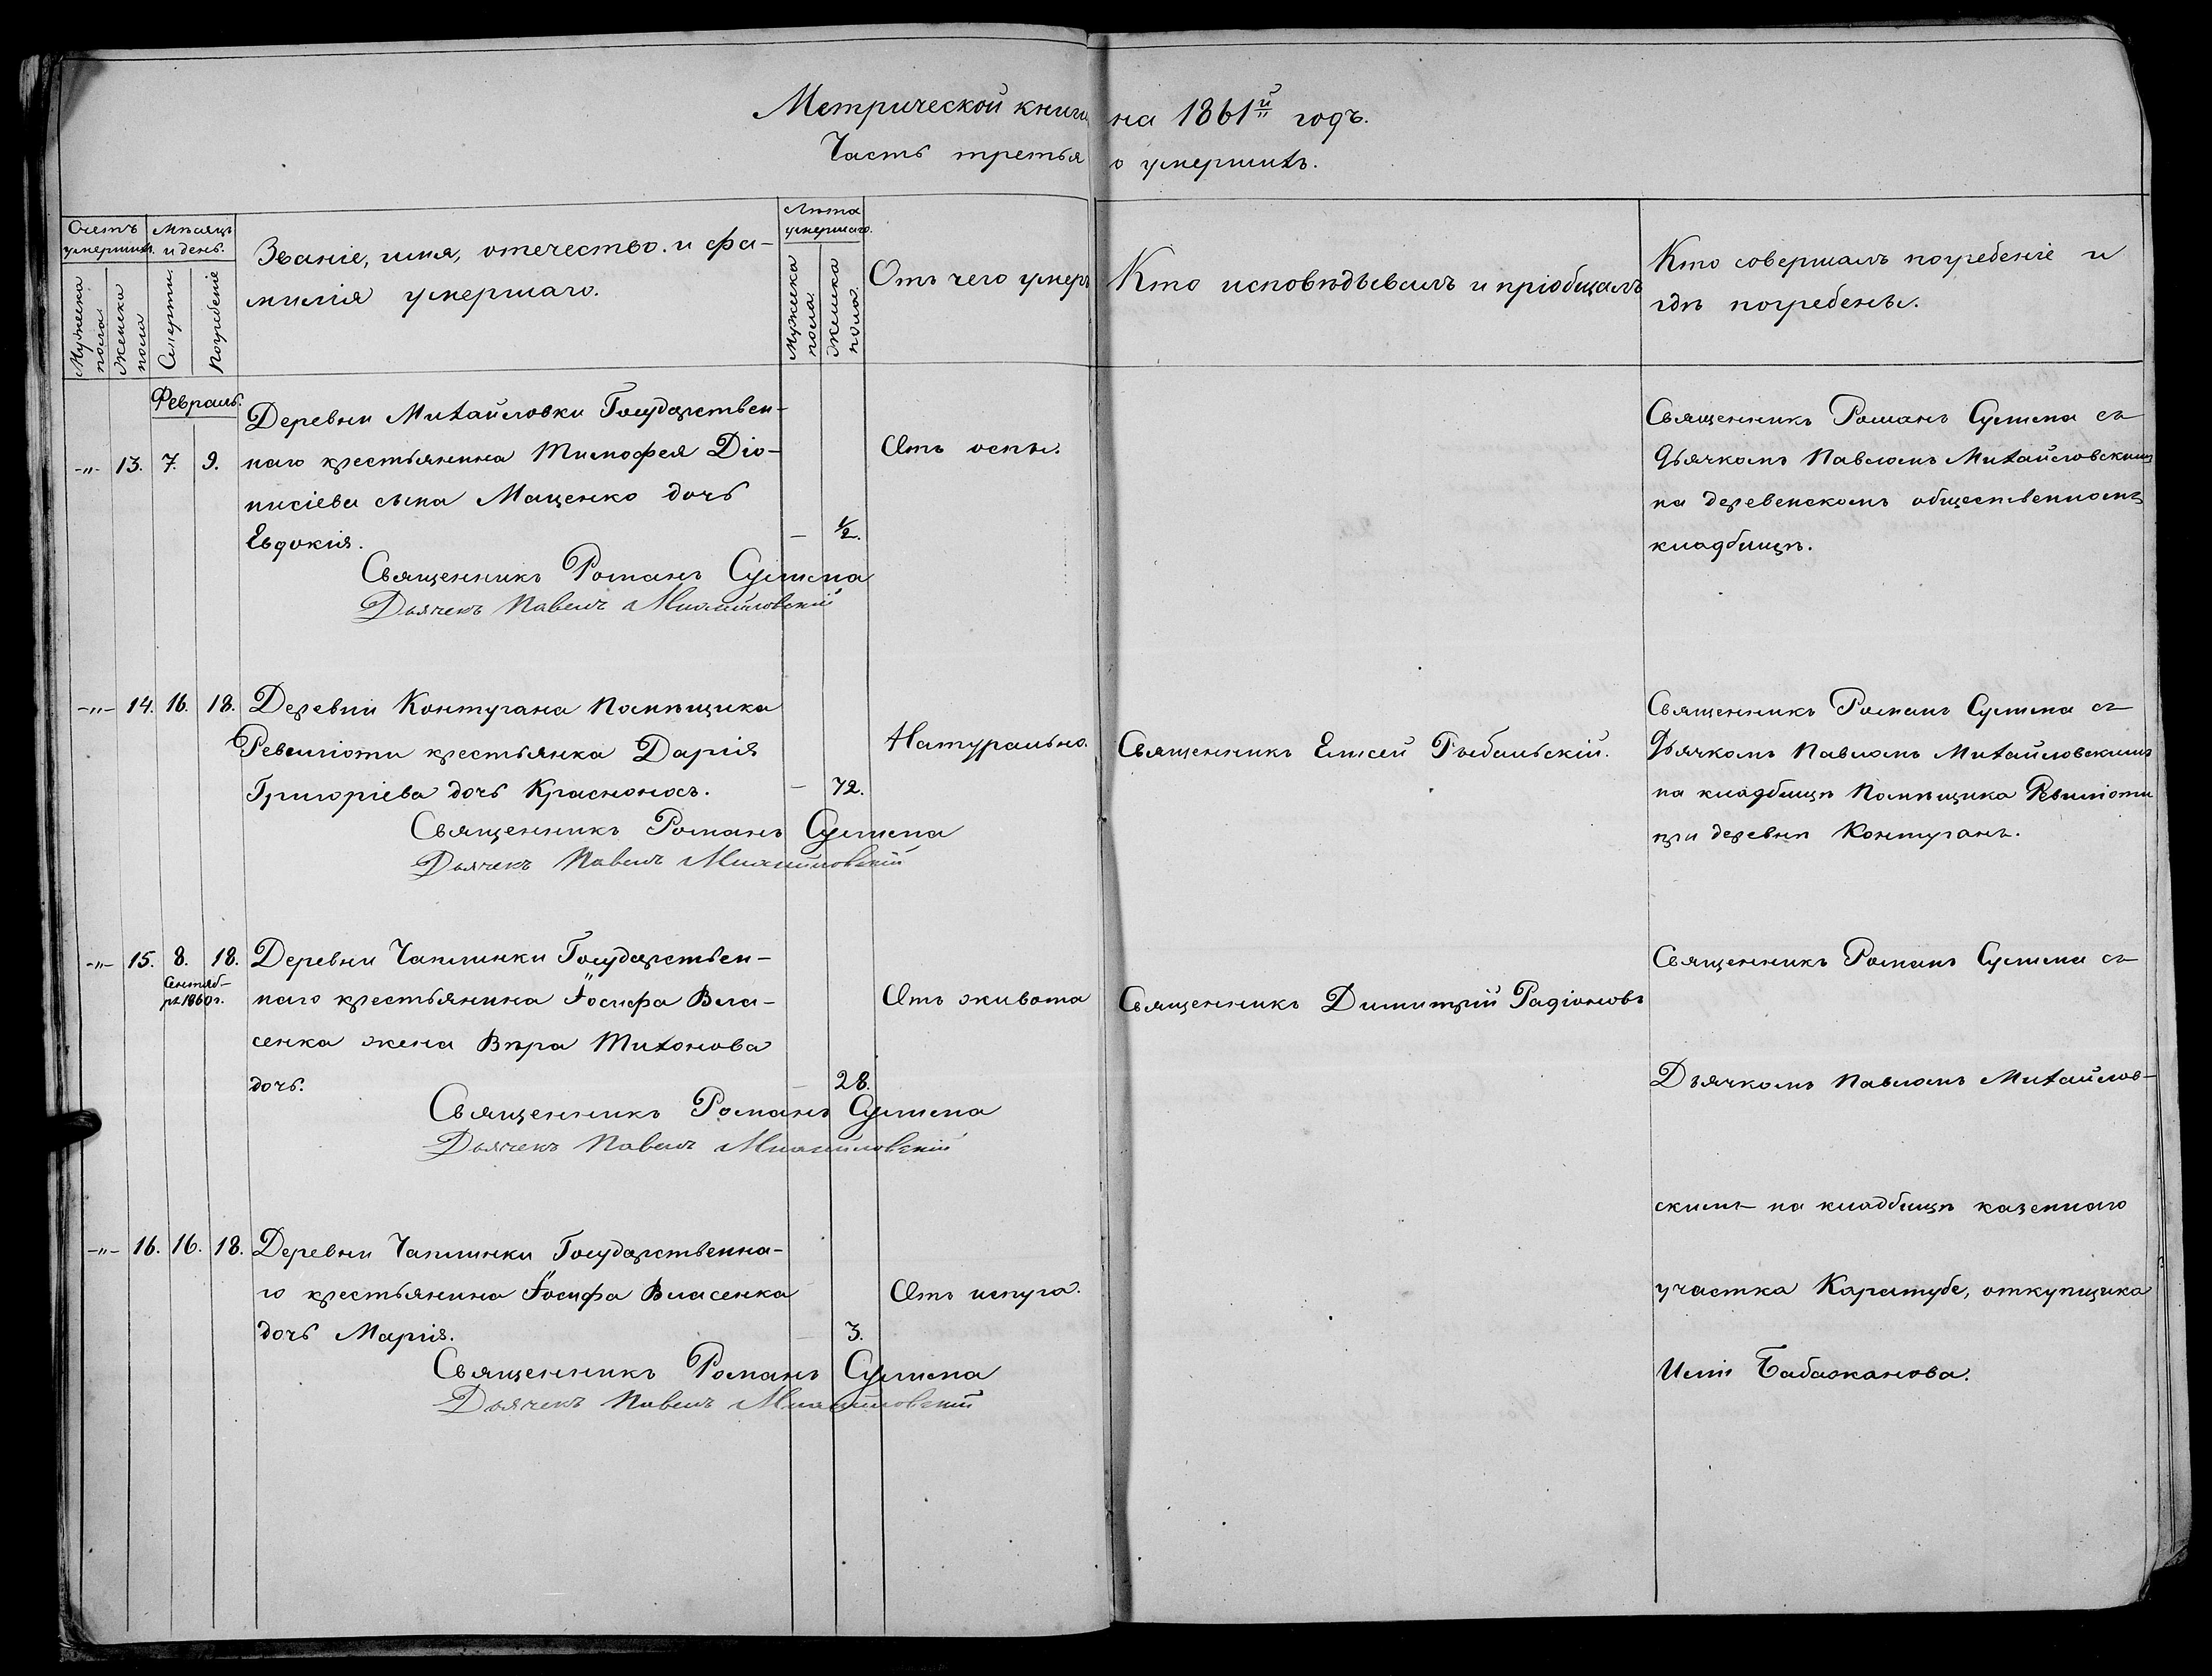 Метрической книги на 1861й годъ.
Часть третья о умершихъ.
Счетъ умершихъ.
Мужеска пола
Женска пола
Мѣсяцъ и день.
Смерти
Погребенiе
Званіе, имя, отечество. и фа-
милія умершаго.
Лѣта умершаго.
Мужеска пола
Женска пола.
Отъ чего умеръ
Кто исповѣдывалъ и пріобщалъ
Кто совершалъ погребеніе и
гдѣ погребены.
Февраль.
-"- 13. 7. 9.
Деревни Михайловки Государствен-
наго крестьянина Тимофея Діо-
нисіева сына Маценко дочь
Евдокія.
— 1/2.
Отъ оспы.
Священникъ Романъ Сулима съ
Дьячкомъ Павломъ Михайловскимъ
на деревенскомъ общественномъ
кладбищѣ.
Священникъ Романъ Сулима
Дьячекъ Павелъ Михайловскій
-"- 14. 16. 18.
Деревни Контугана Помѣщика
Ревеліоти крестьянка Дарія
Григоріева дочь Красноносъ.
— 72.
Натурально.
Священникъ Елисей
Священникъ Романъ Сулима съ
Дьячкомъ Павломъ Михайловскимъ
на кладбищѣ Помѣщика Ревеліоти
при деревнѣ Контуганъ.
Священникъ Романъ Сулима
Дьячекъ Павелъ Михайловскій
-"- 15. 8. 18.
Сентяб-
ря 1860 г.
Деревни Чаплинки Государствен-
наго крестьянина Іосифа Вла-
сенка жена Вѣра Тихонова
дочь.
— 28.
Отъ живота
Священникъ Димитрій Радіоновъ
Священникъ Романъ Сулима съ
Дьячкомъ Павломъ Михайлов-
Священникъ Романъ Сулима
Дьячекъ Павелъ Михайловскій
скимъ на кладбищѣ казеннаго
-"- 16. 16. 18.
Деревни Чаплинки Государственна-
го крестьянина Іосифа Власенка
дочь Марія.
— 3.
Отъ испуга.
участка Каратубе, откупщика
Иліи Бабажанова.
Священникъ Романъ Сулима
Дьячекъ Павелъ Михайловскій